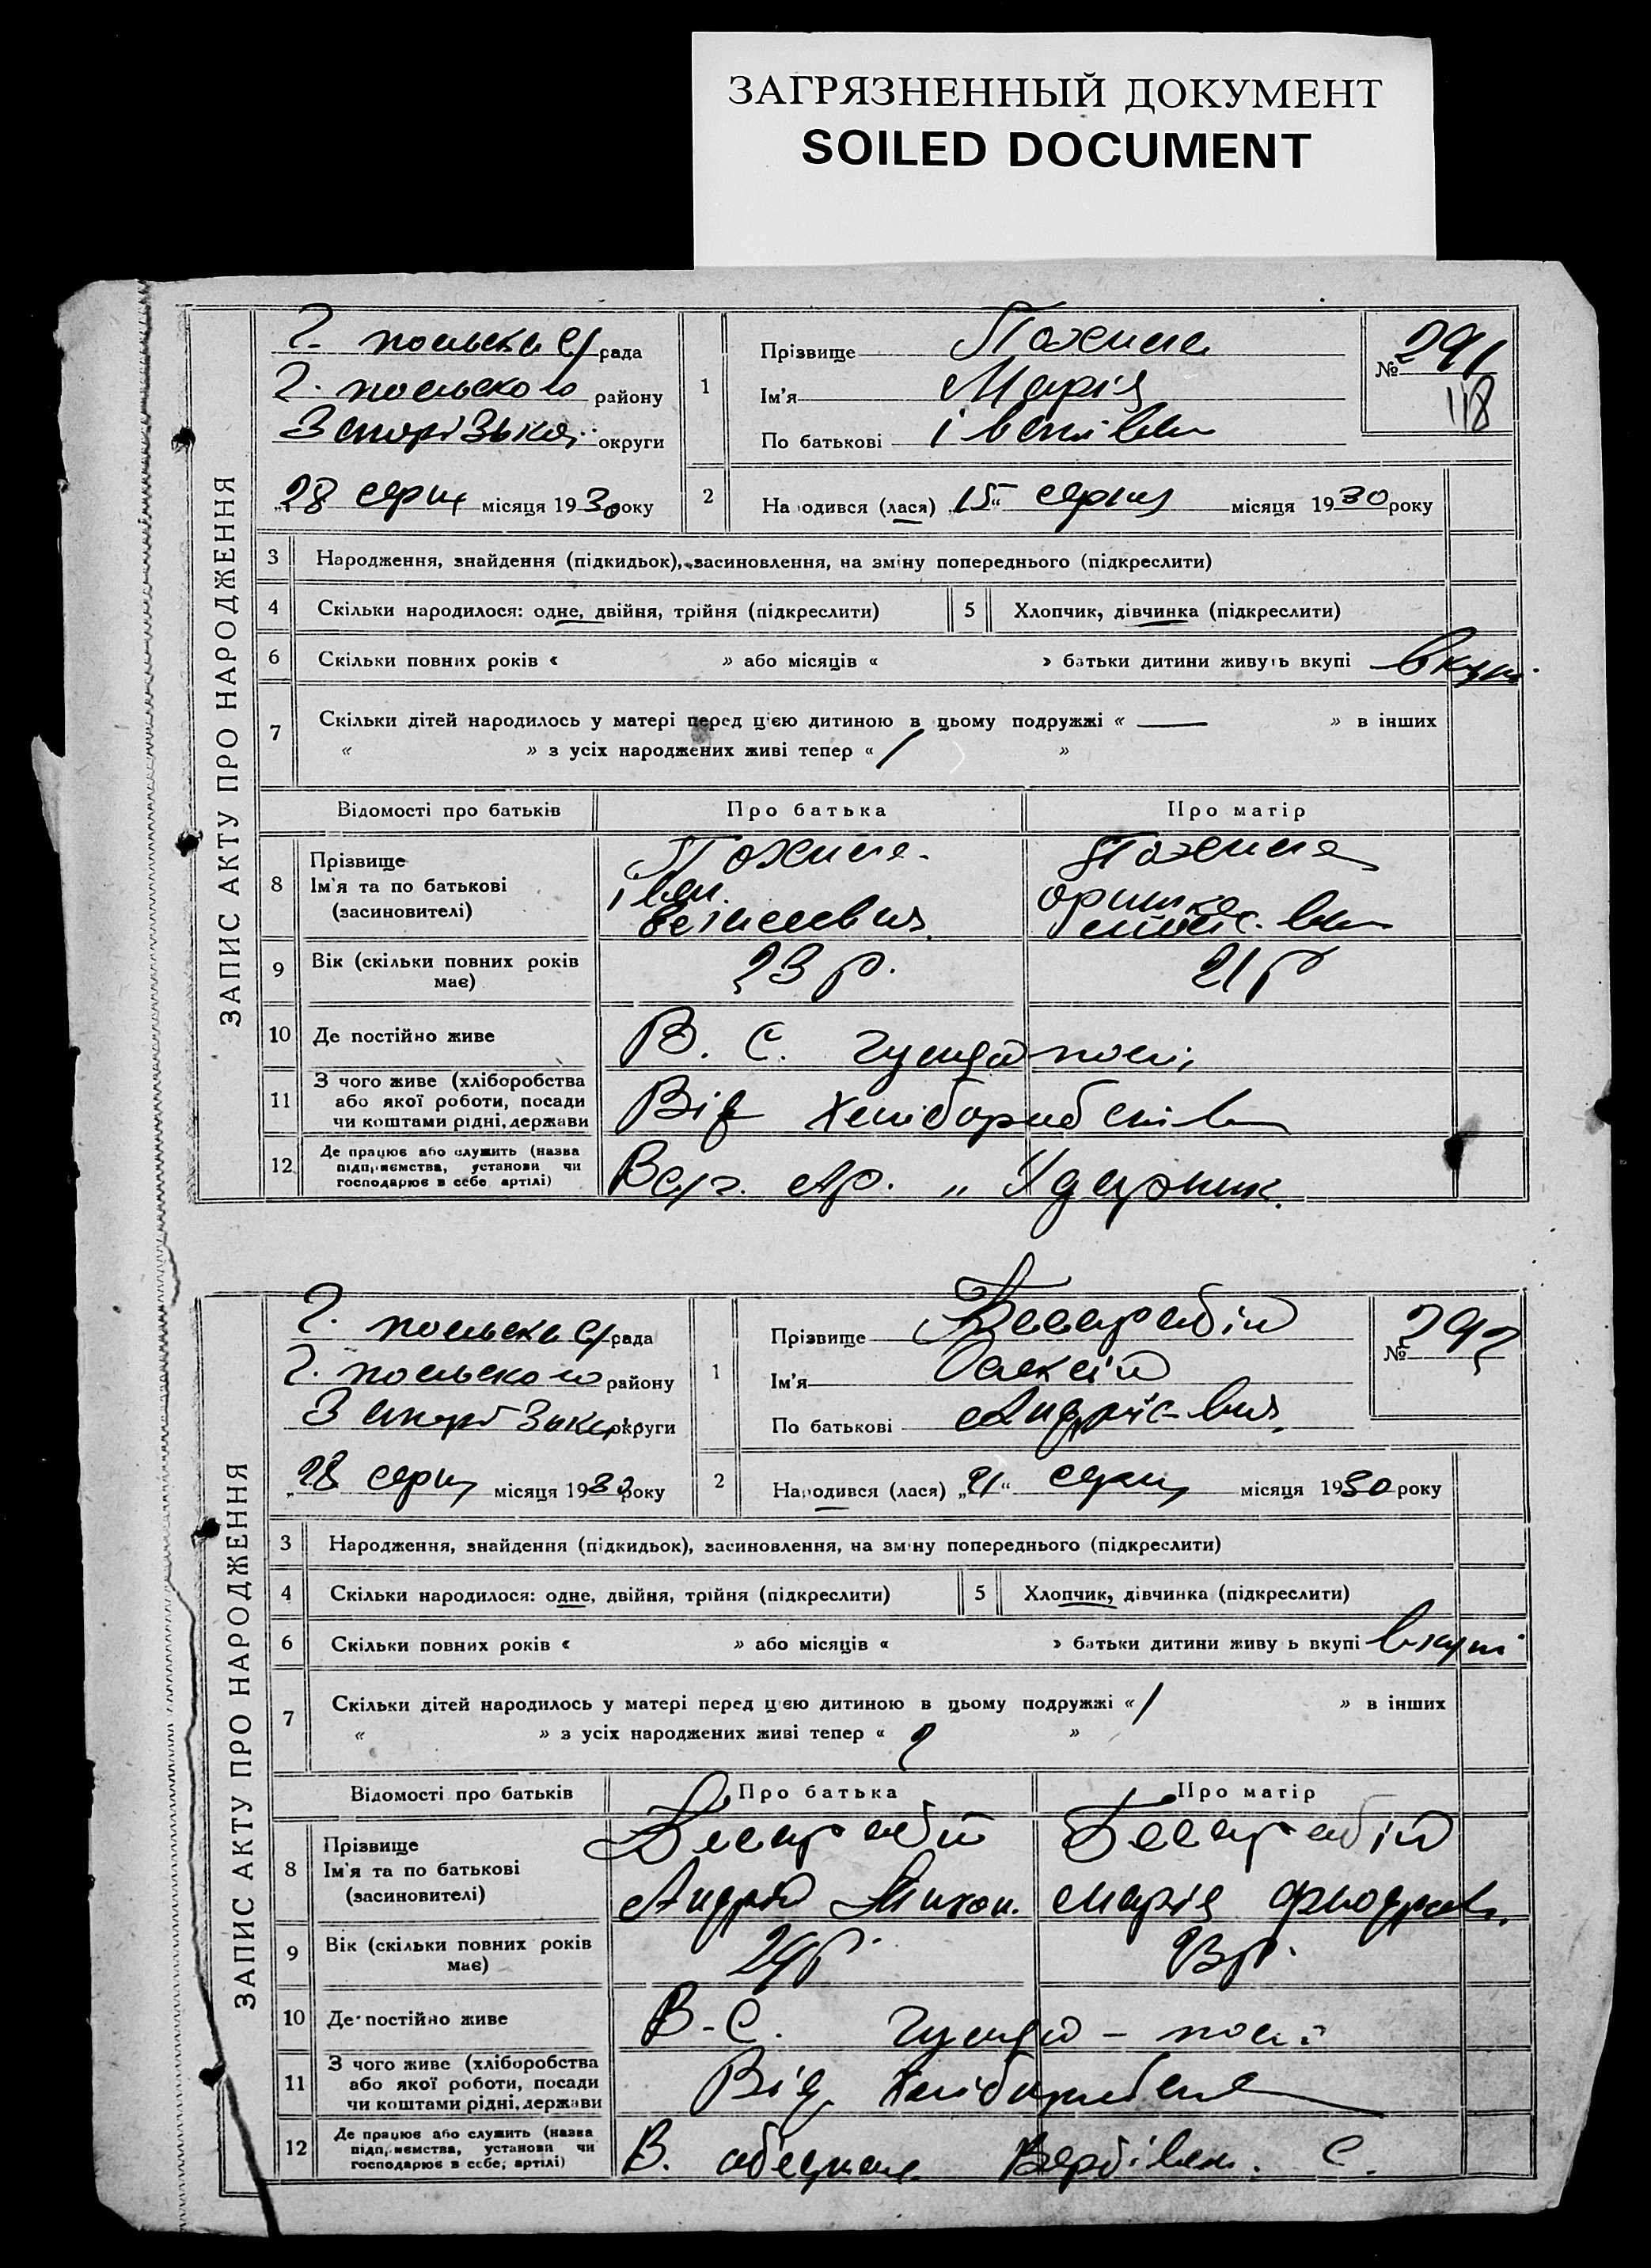 ЗАГРЯЗНЕННЫЙ ДОКУМЕНТ
SOILED DOCUMENT
ЗАПИС АКТУ ПРО НАРОДЖЕННЯ
Г. польська с/рада
Г. польського району
Запорізької округи
„28 серпн місяця 1930 року
1
Прізвище
Ім'я Марія
По батькові Іванівна
№ 291
118
2
На одився (лася) „15“ серпня місяця 1930 року
3 Народження, знайдення (підкидьок), засиновлення, на зміну попереднього (підкреслити)
4 Скільки народилося: одне, двійня, трійня (підкреслити) 5 Хлопчик, дівчинка (підкреслити)
6 Скільки повних років « » або місяців « » батьки дитини живуть вкупі вкупі
7 Скільки дітей народилось у матері перед цією дитиною в цьому подружжі « — » в інших
« » з усіх народжених живі тепер « 1 »
Відомості про батьків Про батька Про матір
8 Прізвище
Ім'я та по батькові
(засиновителі)
Іван
9 Вік (скільки повних років має) 23 р. 21 р
10 Де постійно живе В. С. Гуляйполі
11 З чого живе (хліборобства або якої роботи, посади чи коштами рідні, держави Від хліборобства
12 Де працює або служить (назва підприємства, установи чи господарює в себе артілі) В с/г. ар. „Ударник.
ЗАПИС АКТУ ПРО НАРОДЖЕННЯ
Г. польська с/рада
Г. польського району
Запорізької округи
„28 серпн місяця 1930 року
1
Прізвище Бесарабій
Ім'я Олексій
По батькові Андрієвич
№ 292
2
Народився (лася) „21“ серпн місяця 1930 року
3 Народження, знайдення (підкидьок), засиновлення, на зміну попереднього (підкреслити)
4 Скільки народилося: одне, двійня, трійня (підкреслити) 5 Хлопчик, дівчинка (підкреслити)
6 Скільки повних років « » або місяців « » батьки дитини живу ь вкупі вкупі
7 Скільки дітей народилось у матері перед цією дитиною в цьому подружжі « 1 » в інших
« » з усіх народжених живі тепер « 2 »
Відомості про батьків Про батька Про матір
8 Прізвище
Ім'я та по батькові
(засиновителі)
Бесарабій Бесарабій
Андрій Михай. Марія Фьодоров.
9 Вік (скільки повних років має) 24 р. 23 р.
10 Де постійно живе В-С. Гуляй-полі
11 З чого живе (хліборобства або якої роботи, посади чи коштами рідні, держави Від хліборобства
12 Де працює або служить (назва підприємства, установи чи господарює в себе, артілі) В. Вербівсь. С.